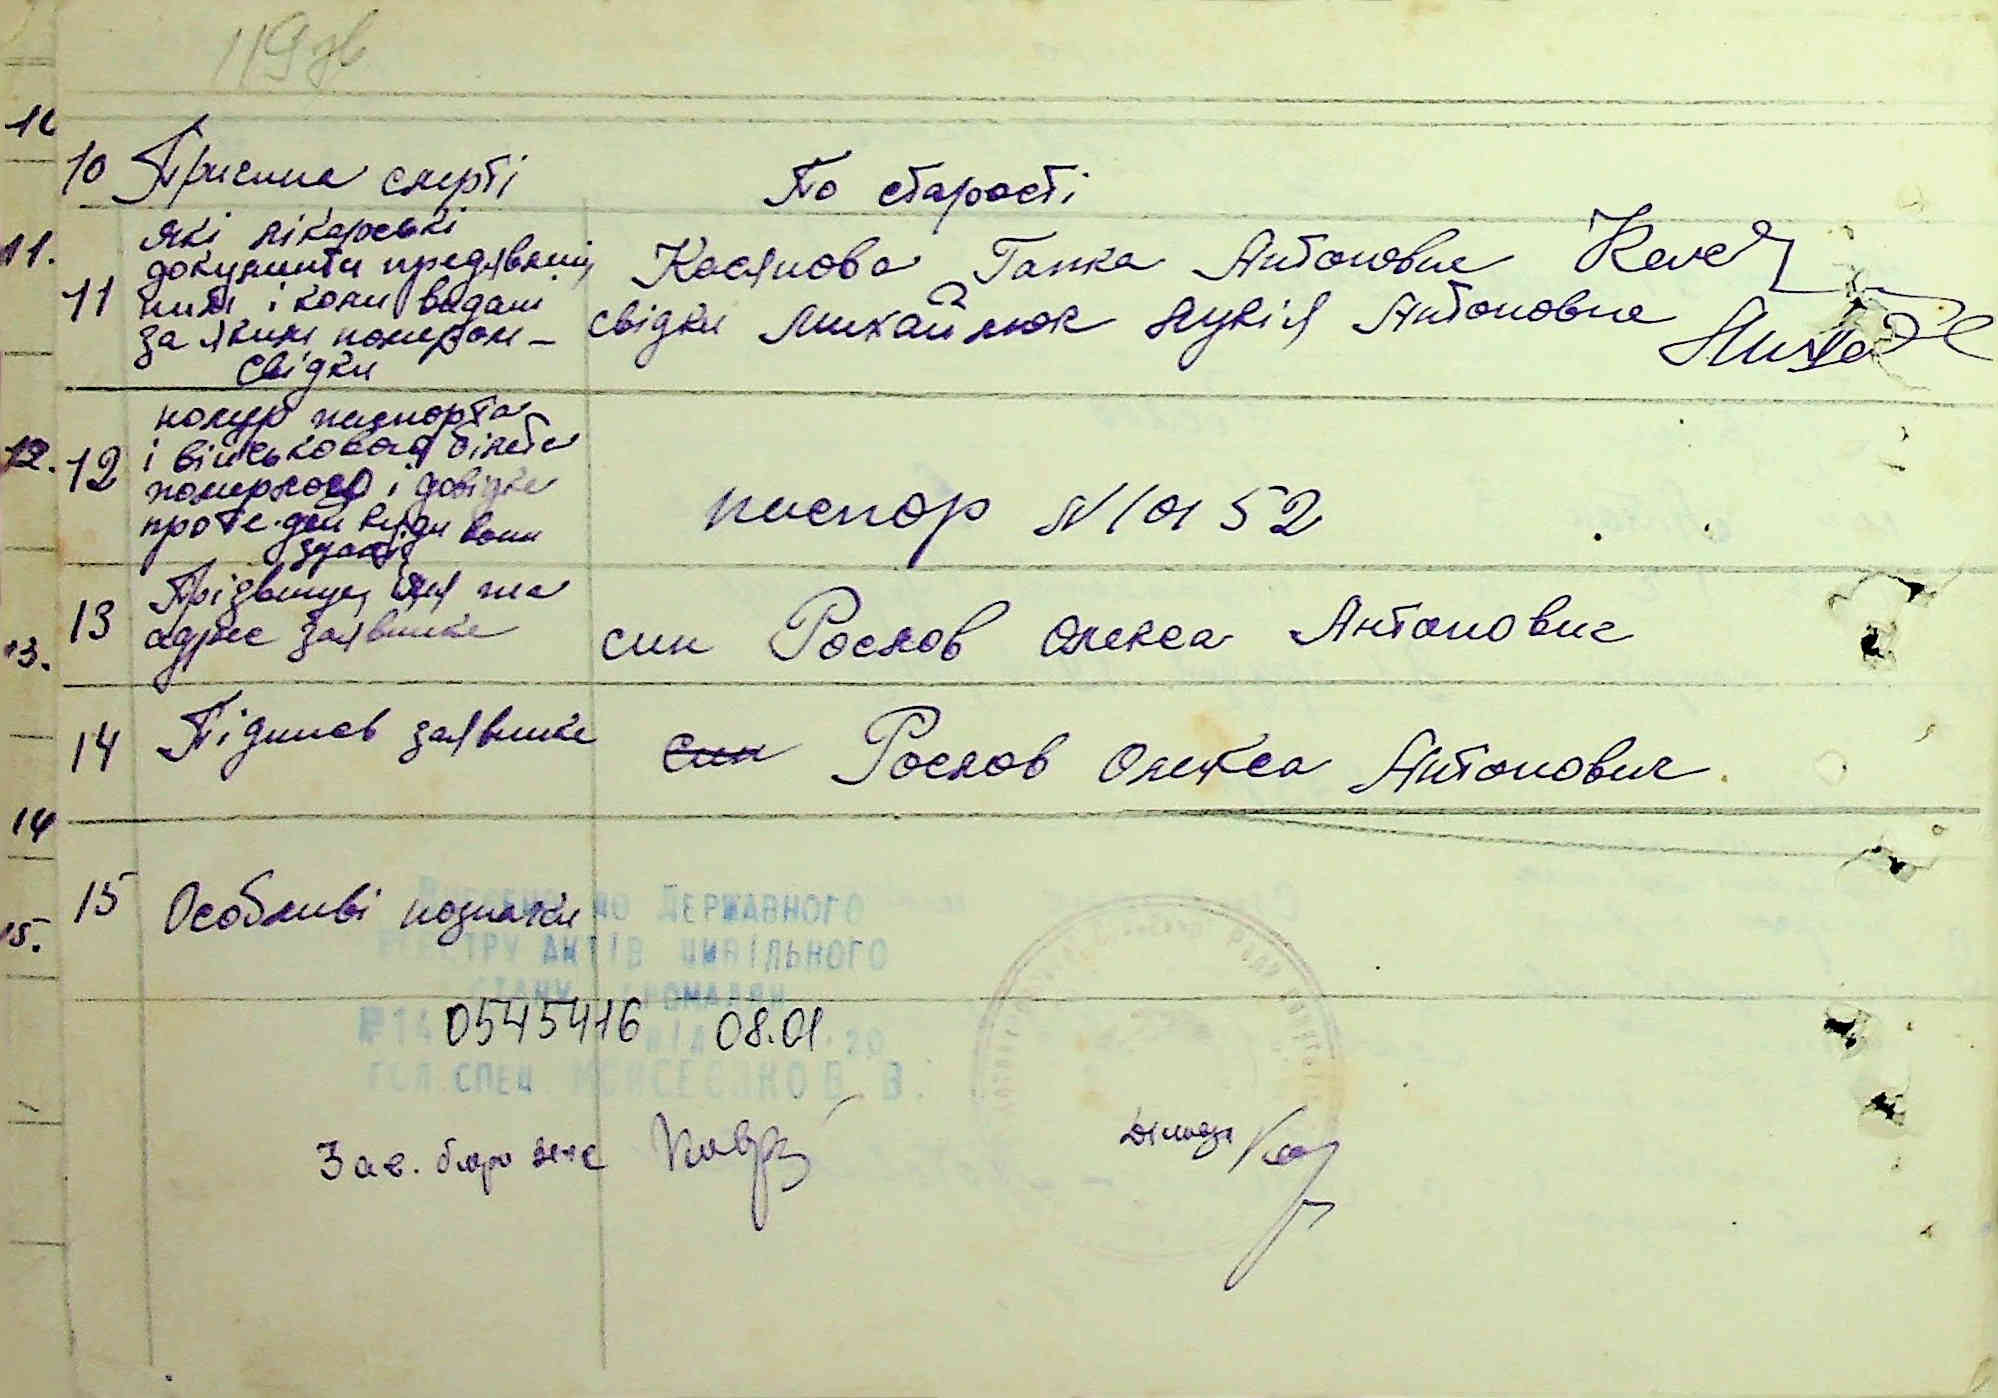 119 зв
10 Причина смерті По старості
11 які лікарські
документи предявлені
ким і коли видані
за яким номером -
свідки
Касянова Ганка Антоновна
свідки Михайлюк Лукія Антоновна
12 номер паспорта
і військового білета
померлого і довідка
про те де й куди вони
здані
паспор № 10152
13 Прізвище, імя та
адрес заявника
син Рослов Олекса Антонович
14 Підпис заявника син Рослов Олекса Антонович.
15 Особливі позначки
Внесено до Державного
реєстру актів цивільного
стану громадян
№14 0545416 від 08.01.20
гол. спец.
Зав. бюро загс
10
11.
12.
13.
14
15.